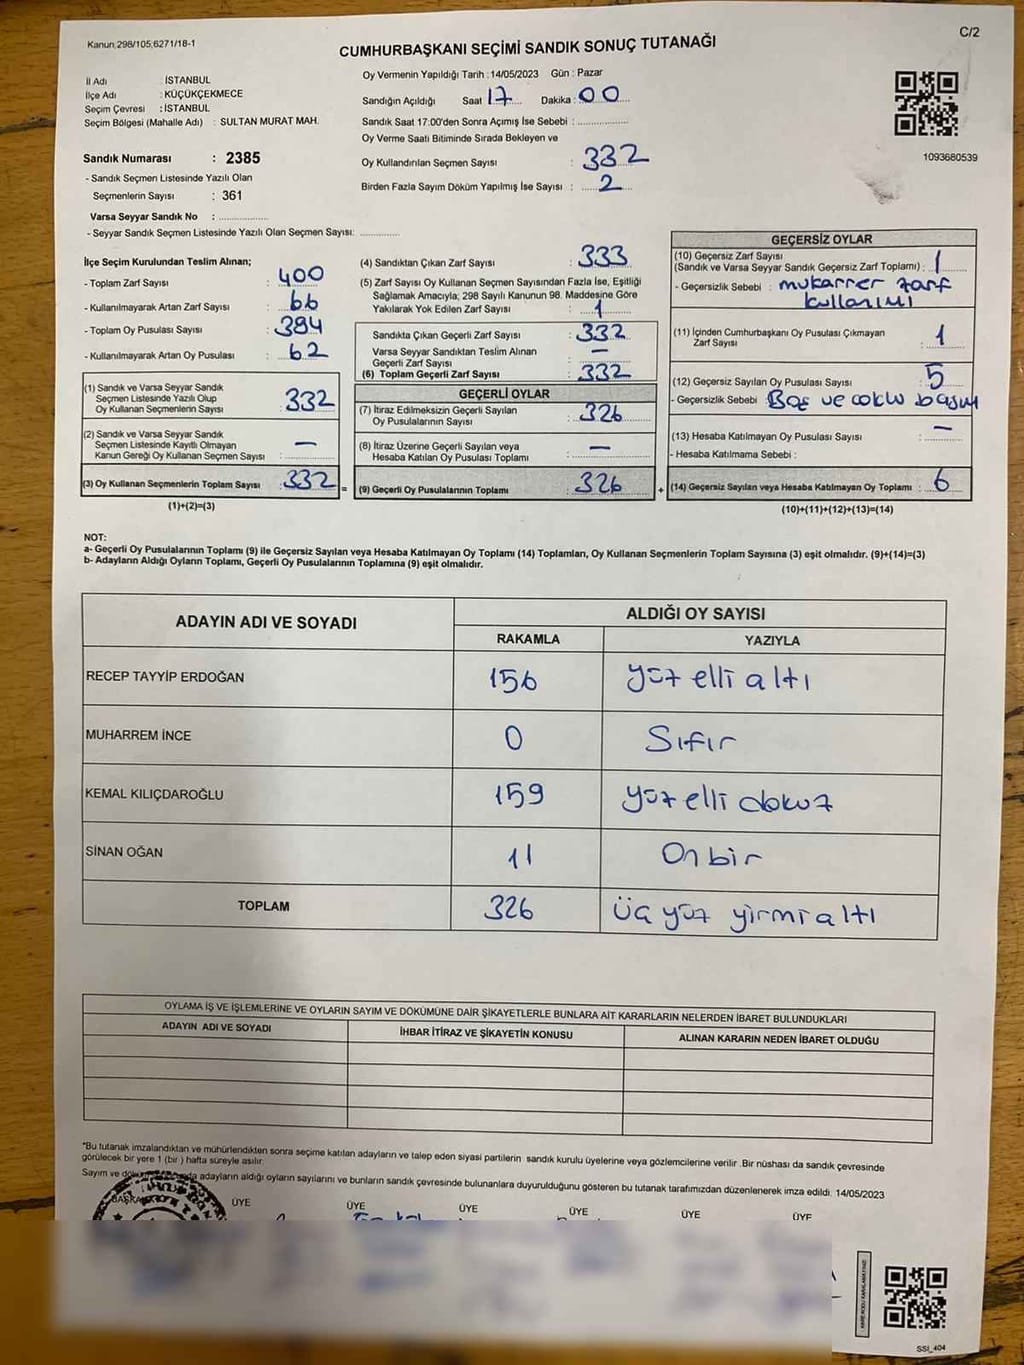 Kanun:298/105;6271/18-1
C/2
CUMHURBAŞKANI SEÇİMİ SANDIK SONUÇ TUTANAĞI
İl Adı : İSTANBUL
İlçe Adı : KÜÇÜKÇEKMECE
Seçim Çevresi : İSTANBUL
Seçim Bölgesi (Mahalle Adı) : SULTAN MURAT MAH.
Sandık Numarası : 2385
- Sandık Seçmen Listesinde Yazılı Olan
Seçmenlerin Sayısı : 361
Varsa Seyyar Sandık No : ................
- Seyyar Sandık Seçmen Listesinde Yazılı Olan Seçmen Sayısı: ............
Oy Vermenin Yapıldığı Tarih : 14/05/2023 Gün : Pazar
Sandığın Açıldığı Saat 17 Dakika : 00
Sandık Saat 17:00'den Sonra Açımış İse Sebebi : ................
Oy Verme Saati Bitiminde Sırada Bekleyen ve
Oy Kullandırılan Seçmen Sayısı : 332
Birden Fazla Sayım Döküm Yapılmış İse Sayısı : 2
1093680539
İlçe Seçim Kurulundan Teslim Alınan;
- Toplam Zarf Sayısı : 400
- Kullanılmayarak Artan Zarf Sayısı : 66
- Toplam Oy Pusulası Sayısı : 394
- Kullanılmayarak Artan Oy Pusulası : 62
(1) Sandık ve Varsa Seyyar Sandık
Seçmen Listesinde Yazılı Olup
Oy Kullanan Seçmenlerin Sayısı : 332
(2) Sandık ve Varsa Seyyar Sandık
Seçmen Listesinde Kayıtlı Olmayan
Kanun Gereği Oy Kullanan Seçmen Sayısı : —
(3) Oy Kullanan Seçmenlerin Toplam Sayısı : 332 =
(1)+(2)=(3)
(4) Sandıktan Çıkan Zarf Sayısı : 333
(5) Zarf Sayısı Oy Kullanan Seçmen Sayısından Fazla İse, Eşitliği
Sağlamak Amacıyla; 298 Sayılı Kanunun 98. Maddesine Göre
Yakılarak Yok Edilen Zarf Sayısı : 1
Sandıkta Çıkan Geçerli Zarf Sayısı : 332
Varsa Seyyar Sandıktan Teslim Alınan
Geçerli Zarf Sayısı : —
(6) Toplam Geçerli Zarf Sayısı : 332
GEÇERLİ OYLAR
(7) İtiraz Edilmeksizin Geçerli Sayılan
Oy Pusulalarının Sayısı : 326
(8) İtiraz Üzerine Geçerli Sayılan veya
Hesaba Katılan Oy Pusulası Toplamı : —
(9) Geçerli Oy Pusulalarının Toplamı : 326 +
GEÇERSİZ OYLAR
(10) Geçersiz Zarf Sayısı
(Sandık ve Varsa Seyyar Sandık Geçersiz Zarf Toplamı) : 1
- Geçersizlik Sebebi : mükarrer zarf
kullanımı
(11) İçinden Cumhurbaşkanı Oy Pusulası Çıkmayan
Zarf Sayısı : 1
(12) Geçersiz Sayılan Oy Pusulası Sayısı : 5
- Geçersizlik Sebebi : Boş ve çoklu basım
(13) Hesaba Katılmayan Oy Pusulası Sayısı : —
- Hesaba Katılmama Sebebi :
(14) Geçersiz Sayılan veya Hesaba Katılmayan Oy Toplamı : 6
(10)+(11)+(12)+(13)=(14)
NOT:
a- Geçerli Oy Pusulalarının Toplamı (9) ile Geçersiz Sayılan veya Hesaba Katılmayan Oy Toplamı (14) Toplamları, Oy Kullanan Seçmenlerin Toplam Sayısına (3) eşit olmalıdır. (9)+(14)=(3)
b- Adayların Aldığı Oyların Toplamı, Geçerli Oy Pusulalarının Toplamına (9) eşit olmalıdır.
ADAYIN ADI VE SOYADI
ALDIĞI OY SAYISI
RAKAMLA YAZIYLA
RECEP TAYYİP ERDOĞAN 156 yüz elli altı
MUHARREM İNCE 0 Sıfır
KEMAL KILIÇDAROĞLU 159 yüz elli dokuz
SİNAN OĞAN 11 On bir
TOPLAM 326 üç yüz yirmi altı
OYLAMA İŞ VE İŞLEMLERİNE VE OYLARIN SAYIM VE DÖKÜMÜNE DAİR ŞİKAYETLERLE BUNLARA AİT KARARLARIN NELERDEN İBARET BULUNDUKLARI
ADAYIN ADI VE SOYADI İHBAR İTİRAZ VE ŞİKAYETİN KONUSU ALINAN KARARIN NEDEN İBARET OLDUĞU
*Bu tutanak imzalandıktan ve mühürlendikten sonra seçime katılan adayların ve talep eden siyasi partilerin sandık kurulu üyelerine veya gözlemcilerine verilir .Bir nüshası da sandık çevresinde
görülecek bir yere 1 (bir ) hafta süreyle asılır.
Sayım ve adayların aldığı oyların sayılarını ve bunların sandık çevresinde bulunanlara duyurulduğunu gösteren bu tutanak tarafımızdan düzenlenerek imza edildi. 14/05/2023
BAŞKAN ÜYE ÜYE ÜYE ÜYE ÜYE ÜYE
SSİ_404